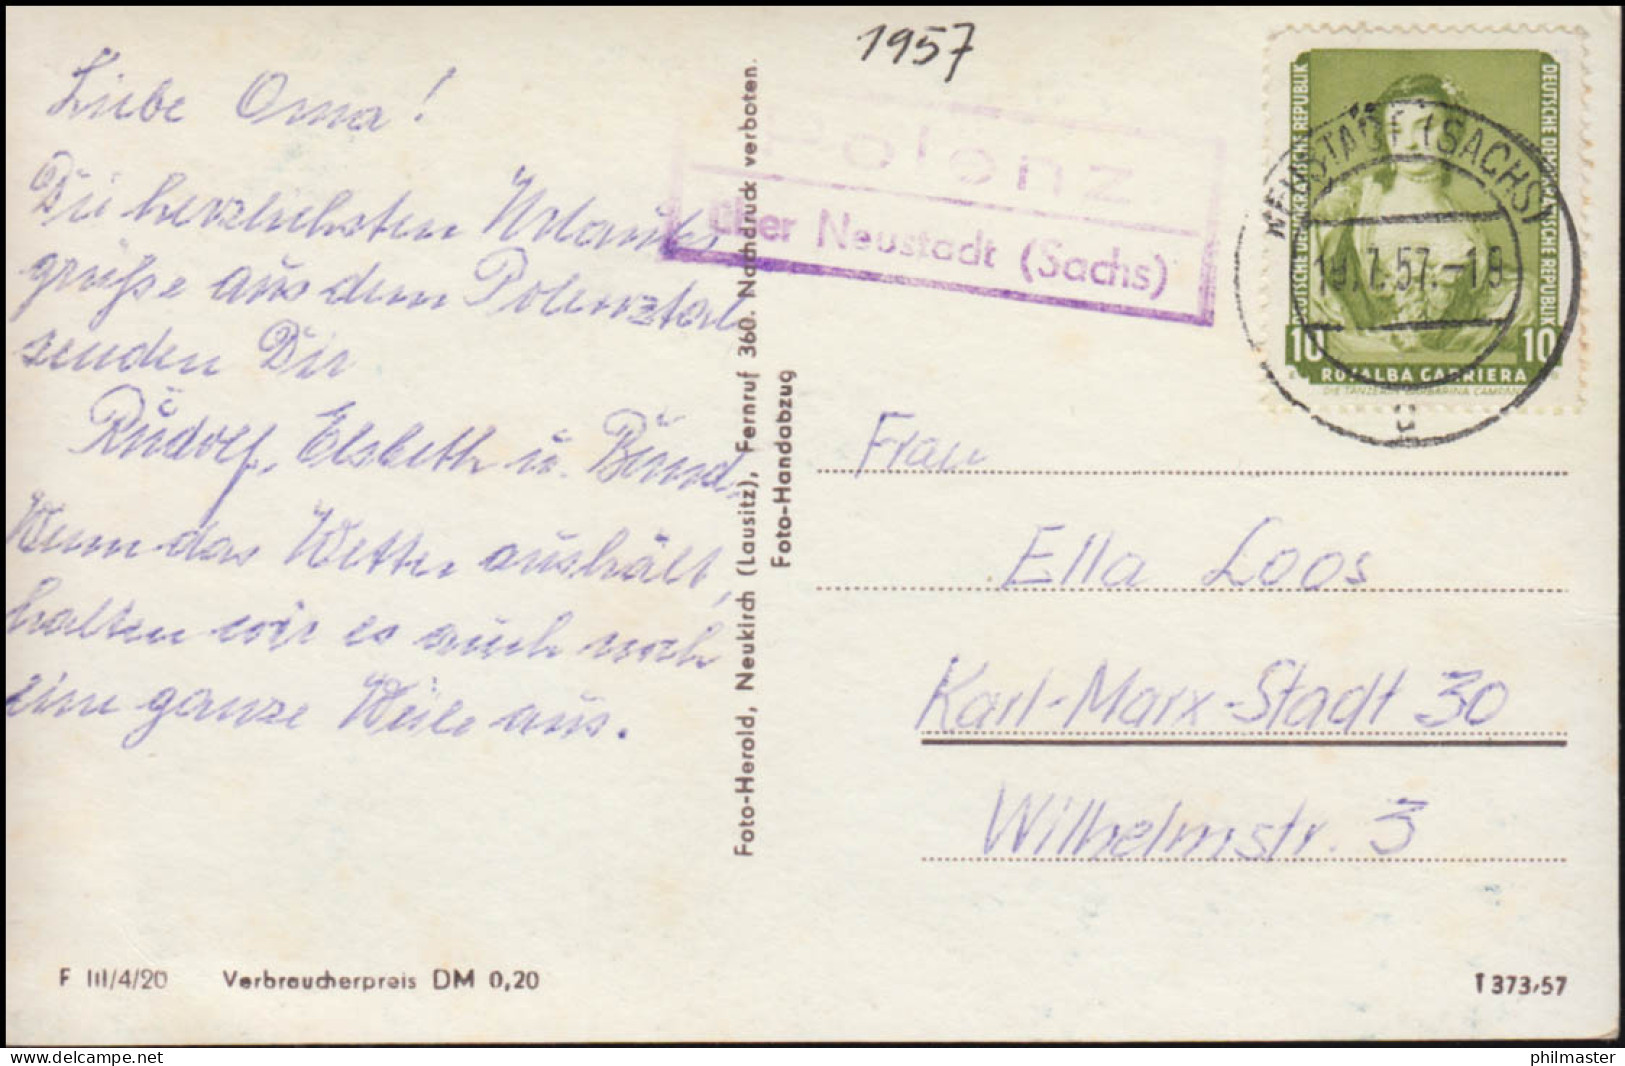 1957
Liebe Oma!
Die herzlichsten Urlaubs
grüße aus dem Polenztal
senden Dir
Rudolf, Elsbeth u. Bernd.
Wenn das Wetter aushält,
halten wir es auch noch
eine ganze Weile aus.
Polenz
über Neustadt (Sachs)
DEUTSCHE DEMOKRATISCHE REPUBLIK
DEUTSCHE DEMOKRATISCHE REPUBLIK
10
10
ROSALBA CARRIERA
DIE TÄNZERIN BARBARINA CAMPANI
NEUSTADT (SACHS)
19.7.57.-18
Foto-Herold, Neukirch (Lausitz), Fernruf 360. Nachdruck verboten.
Foto-Handabzug
Frau
Ella Loos
Karl-Marx-Stadt 30
Wilhelmstr. 3
F III/4/20 Verbraucherpreis DM 0,20
T 373/57
delcampe.net
philmaster